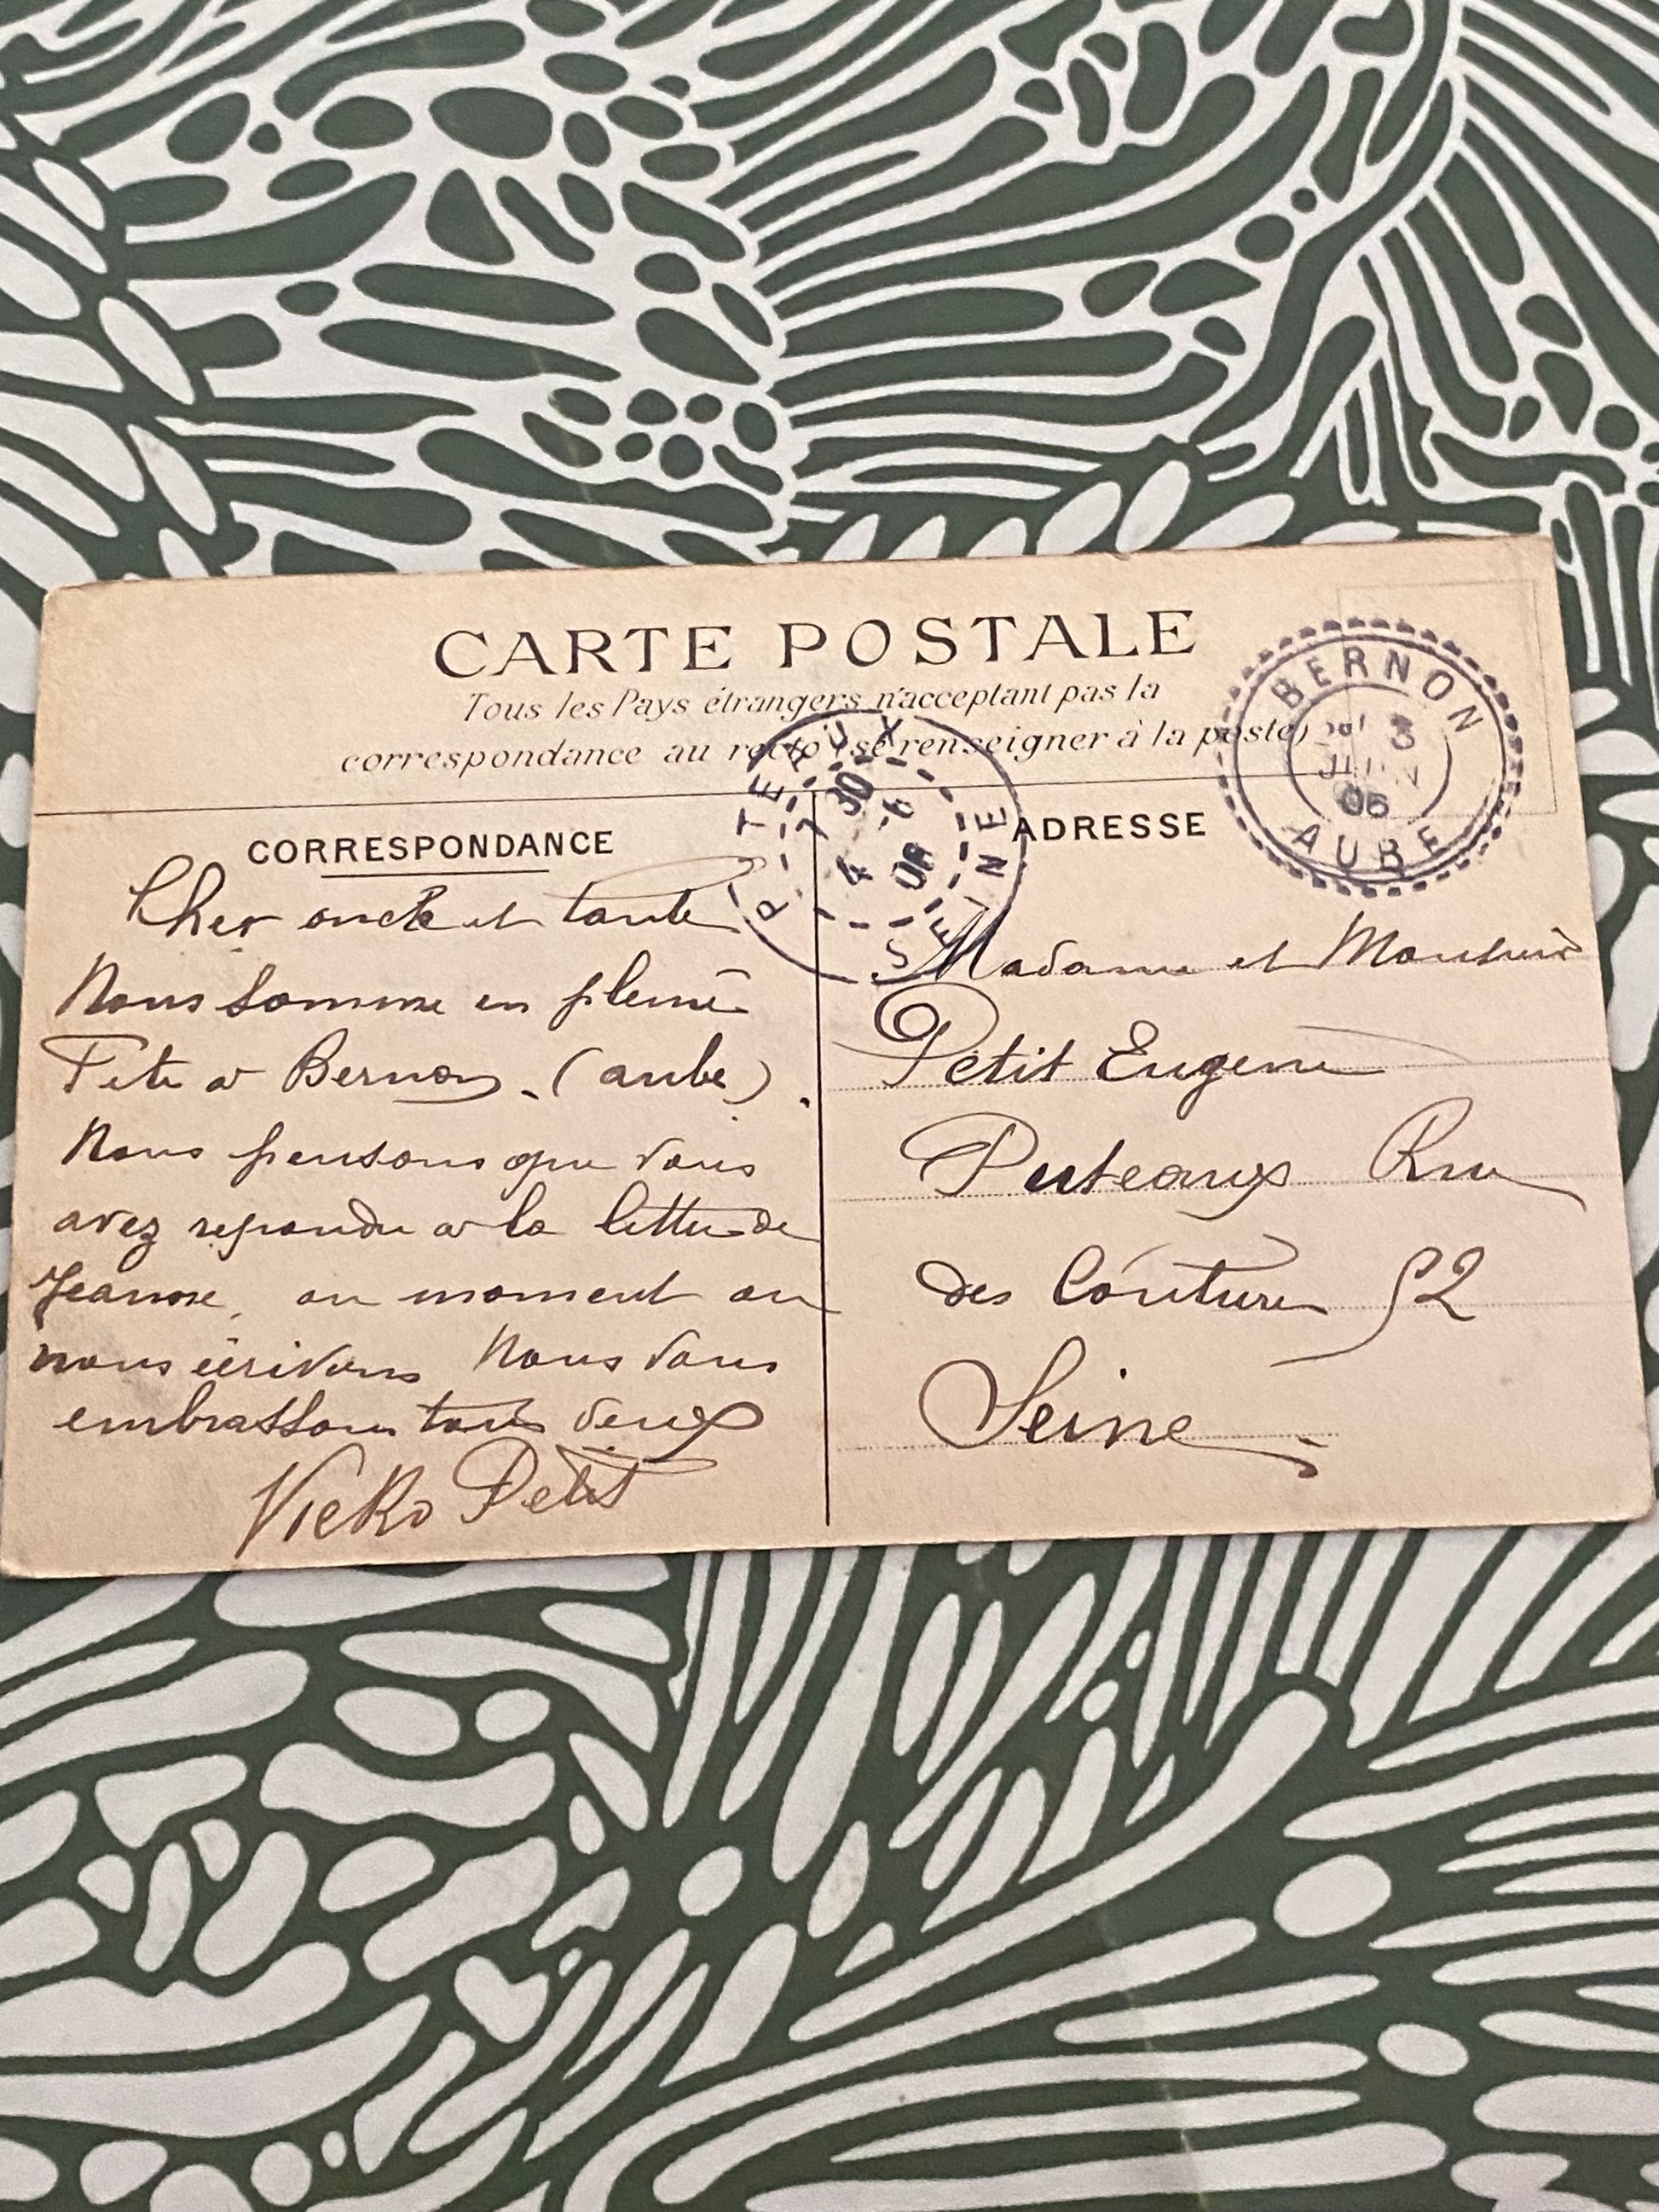 CARTE POSTALE
Tous les Pays étrangers n'acceptant pas la
correspondance au recto (se renseigner à la poste)
BERNON
3
JUIN
06
AUBE
PUTEAUX
7 30
4 -6
06
SEINE
CORRESPONDANCE
Cher oncle et tante
Nous somme en pleine
Fete a Bernon. (aube).
Nous pensons que vous
avez repondu a la lettre de
Jeanne, au moment ou
nous écrivons Nous vous
embrassons tous deux
Petit
ADRESSE
Madame et Monsieur
Petit Eugene
Puteaux Rue
des Couture 52
Seine